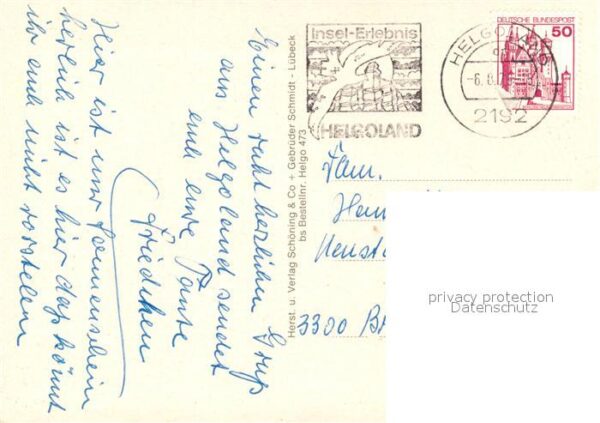 Einen recht herzlichen Gruß
aus Helgoland sendet
euch eure Tante
Friedchen
Hier ist nur Sonnenschein
herlich ist es hier das könnt
ihr euch nicht vorstellen
Herst. u. Verlag Schöning & Co + Gebrüder Schmidt - Lübeck
bs Bestellnr. Helgo 473
Insel-Erlebnis
HELGOLAND
HELGOLAND
-6.8.7
2192
DEUTSCHE BUNDESPOST
50
Fam.
3300
privacy protection
Datenschutz